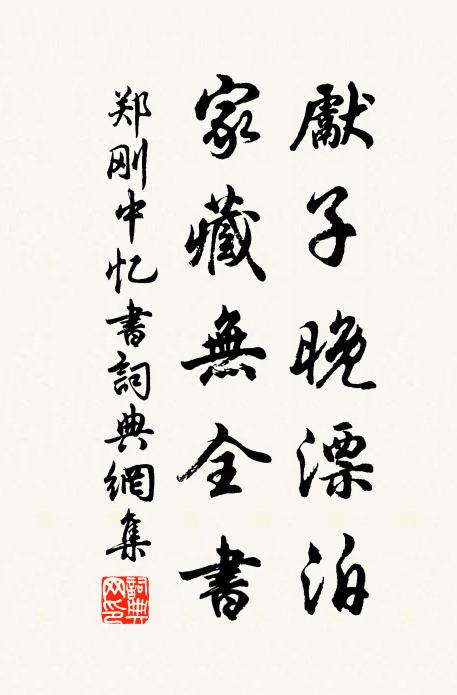 獻子晚漂泊
家藏無全書
郑刚中忆書詞典網集
詞典网印